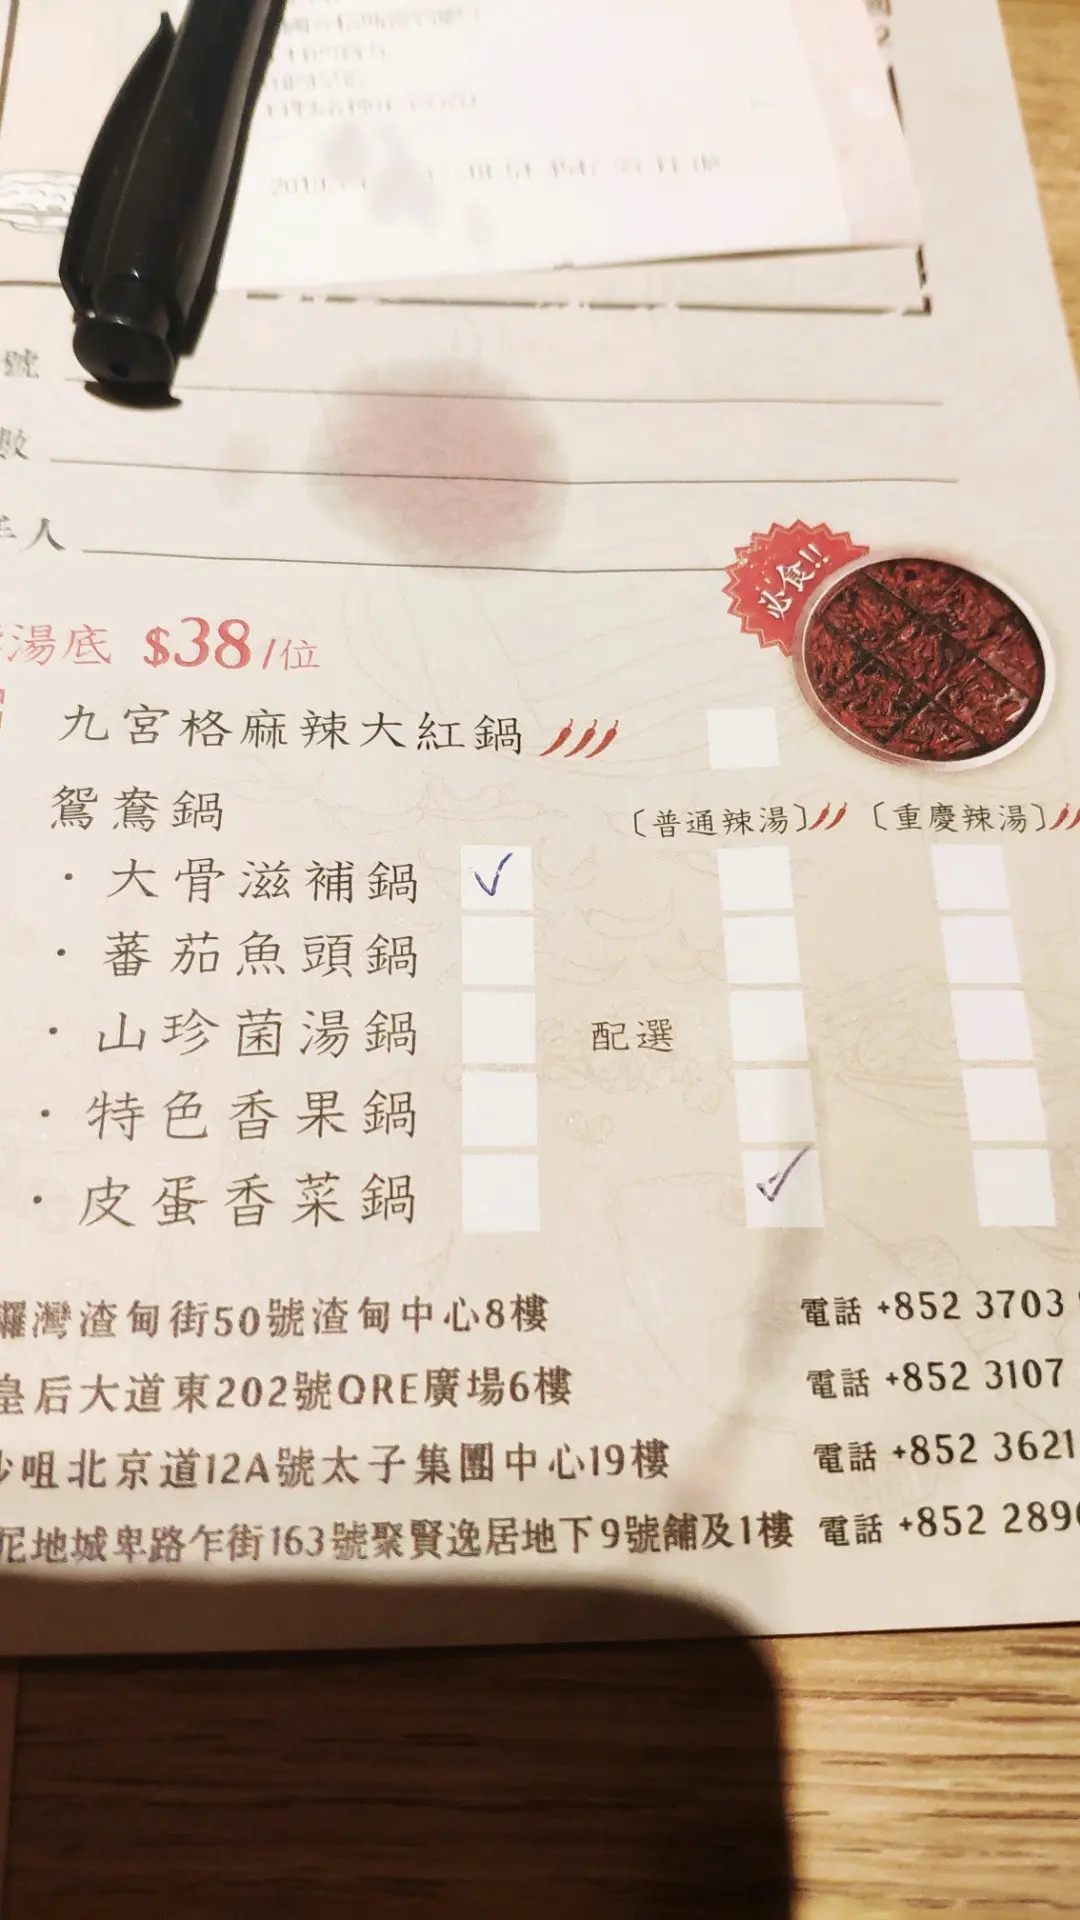 2019
號
數
人
必食!!
湯底 $38/位
九宮格麻辣大紅鍋
鴛鴦鍋 〔普通辣湯〕 〔重慶辣湯〕
· 大骨滋補鍋 ✓
· 蕃茄魚頭鍋
· 山珍菌湯鍋 配選
· 特色香果鍋
· 皮蛋香菜鍋 ✓
灣渣甸街50號渣甸中心8樓 電話 +852 3703
皇后大道東202號QRE廣場6樓 電話 +852 3107
咀北京道12A號太子集團中心19樓 電話 +852 3621
尼地城卑路乍街163號聚賢逸居地下9號舖及1樓 電話 +852 289